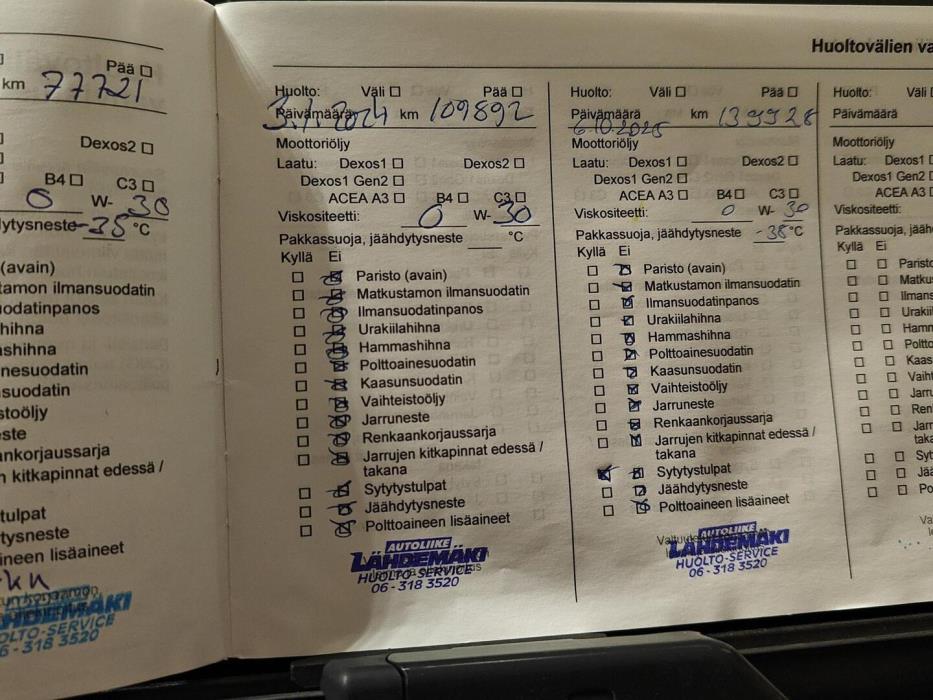 Pää
km 77721
Dexos2
B4 C3
0 W- 30
dytysneste -35 °C
(avain)
tamon ilmansuodatin
uodatinpanos
hihna
ashihna
inesuodatin
suodatin
stoöljy
este
ankorjaussarja
n kitkapinnat edessä /
tulpat
tysneste
aineen lisäaineet
LÄHDEMÄKI
OLTO-SERVICE
6 - 318 3520
Huolto: Väli Pää
Päivämäärä 3.1.2024 km 109892
Moottoriöljy
Laatu: Dexos1 Dexos2
Dexos1 Gen2
ACEA A3 B4 C3
Viskositeetti: 0 W- 30
Pakkassuoja, jäähdytysneste °C
Kyllä Ei
Paristo (avain)
Matkustamon ilmansuodatin
Ilmansuodatinpanos
Urakiilahihna
Hammashihna
Polttoainesuodatin
Kaasunsuodatin
Vaihteistoöljy
Jarruneste
Renkaankorjaussarja
Jarrujen kitkapinnat edessä /
takana
Sytytystulpat
Jäähdytysneste
Polttoaineen lisäaineet
AUTOLIIKE
LÄHDEMÄKI
HUOLTO-SERVICE
06 - 318 3520
Huoltovälien va
Huolto: Väli Pää
Päivämäärä 6.10.2025 km 139928
Moottoriöljy
Laatu: Dexos1 Dexos2
Dexos1 Gen2
ACEA A3 B4 C3
Viskositeetti: 0 W- 30
Pakkassuoja, jäähdytysneste -38 °C
Kyllä Ei
Paristo (avain)
Matkustamon ilmansuodatin
Ilmansuodatinpanos
Urakiilahihna
Hammashihna
Polttoainesuodatin
Kaasunsuodatin
Vaihteistoöljy
Jarruneste
Renkaankorjaussarja
Jarrujen kitkapinnat edessä /
takana
Sytytystulpat
Jäähdytysneste
Polttoaineen lisäaineet
AUTOLIIKE
LÄHDEMÄKI
HUOLTO-SERVICE
06 - 318 3520
Huolto: Väli
Päivämäärä
Moottoriöljy
Laatu: Dexos1
Dexos1 Gen2
ACEA A3
Viskositeetti:
Pakkassuoja, jääh
Kyllä Ei
Paristo
Matkus
Ilmans
Urakiil
Hamm
Poltto
Kaas
Vaiht
Jarru
Ren
Jarr
taka
Syt
Jää
Po